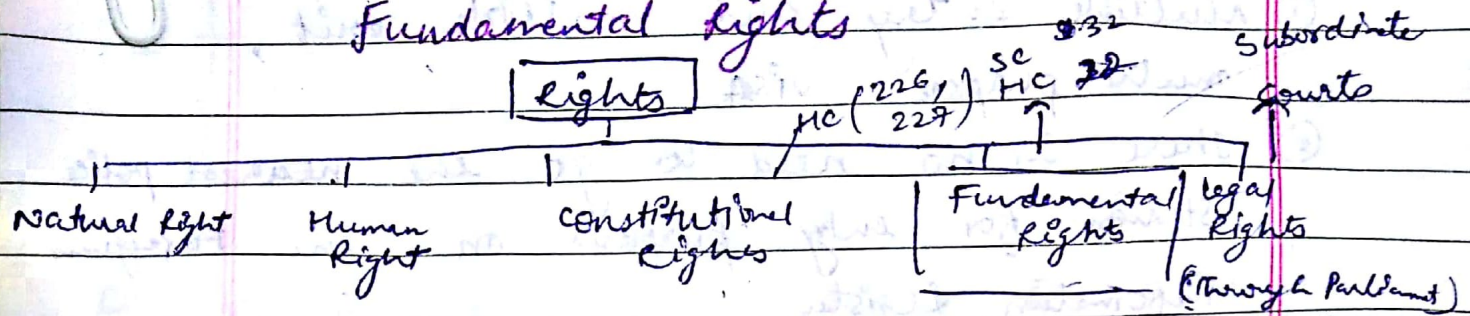 Fundamental Rights
Rights
HC (226, 227)
SC 32
HC
Subordinate
Courts
Natural Right
Human
Right
Constitutional
Rights
Fundemental
Rights
Legal
Rights
(Through Parliament)